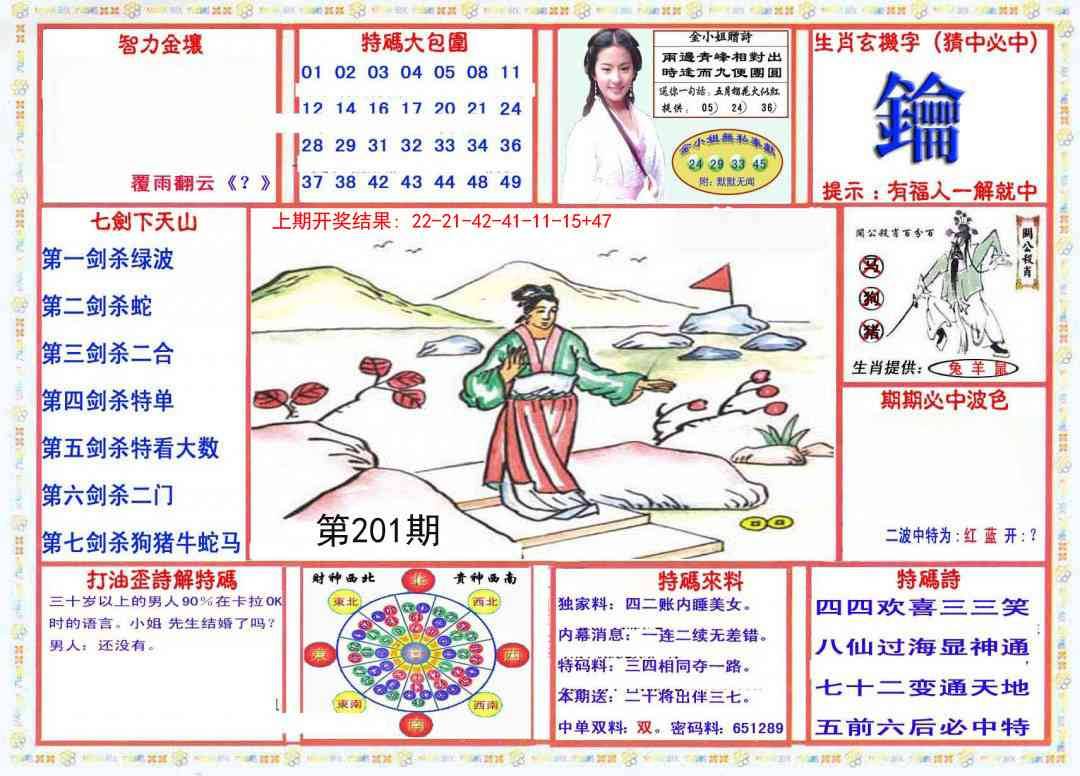 智力金壤
覆雨翻云《？》
特碼大包圍
01 02 03 04 05 08 11
12 14 16 17 20 21 24
28 29 31 32 33 34 36
37 38 42 43 44 48 49
金小姐贈詩
兩邊青峰相對出
時逢而九便團圓
送你一句话，五月榴花火似红
提供，05）24）36）
金小姐無私奉獻
24 29 33 45
附：默默无闻
生肖玄機字（猜中必中）
鑰
提示：有福人一解就中
七劍下天山
第一剑杀绿波
第二剑杀蛇
第三剑杀二合
第四剑杀特单
第五剑杀特看大数
第六剑杀二门
第七剑杀狗猪牛蛇马
上期开奖结果：22-21-42-41-11-15+47
第201期
関公殺肖百分百
関公殺肖
马
狗
猪
生肖提供：兔 羊 鼠
期期必中波色
二波中特为：红 蓝 开：？
打油歪詩解特碼
三十岁以上的男人90％在卡拉OK
时的语言。小姐 先生结婚了吗？
男人：还没有。
財神西北
貴神西南
北
東北
西北
東
西
東南
西南
南
特碼來料
独家料：四二账内睡美女。
内幕消息：一连二续无差错。
特码料：三四相同夺一路。
本期送：二十将出伴三七。
中单双料：双。密码料：651289
特碼詩
四四欢喜三三笑
八仙过海显神通
七十二变通天地
五前六后必中特